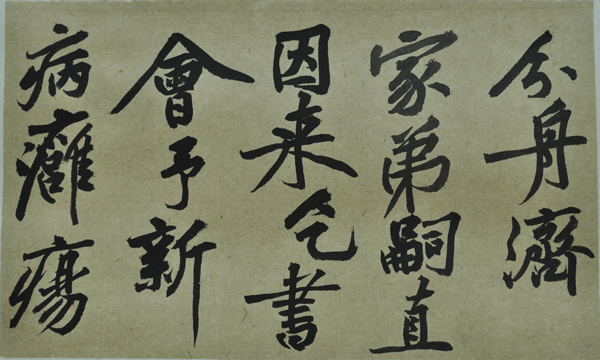 分舟濟
家弟嗣直
因来乞書
會予新
病癰瘍